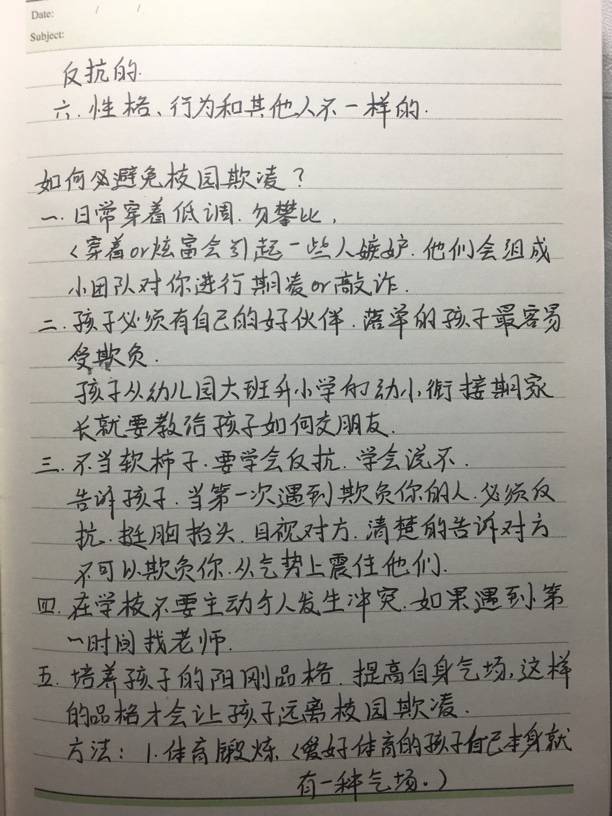 Date: / /
Subject:
反抗的.
六.性格、行为和其他人不一样的.
如何必避免校园欺凌?
一.日常穿着低调.勿攀比,
(穿着or炫富会引起一些人嫉妒.他们会组成
小团队对你进行期凌or敲诈.
二.孩子必须有自己的好伙伴.落单的孩子最容易
受欺负.
孩子从幼儿园大班升小学的幼小衔接期家
长就要教给孩子如何交朋友.
三.不当软柿子.要学会反抗.学会说不.
告诉孩子.当第一次遇到欺负你的人.必须反
抗.挺胸抬头.目视对方.清楚的告诉对方
不可以欺负你.从气势上震住他们.
四.在学校不要主动与人发生冲突.如果遇到第
一时间找老师.
五.培养孩子的阳刚品格.提高自身气场,这样
的品格才会让孩子远离校园欺凌.
方法:1.体育锻炼(爱好体育的孩子自己本身就
有一种气场.)